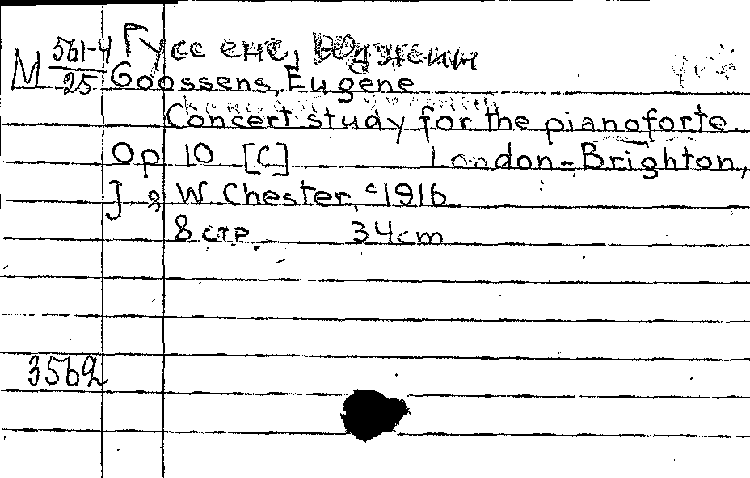 М 561-4/25 Гуссенс, Юджени
Goossens, Eugène
Concert study for the pianoforte
Op 10 [C] London-Brighton,
J & W. Chester, c1916
8 стр. 34 cm
3562